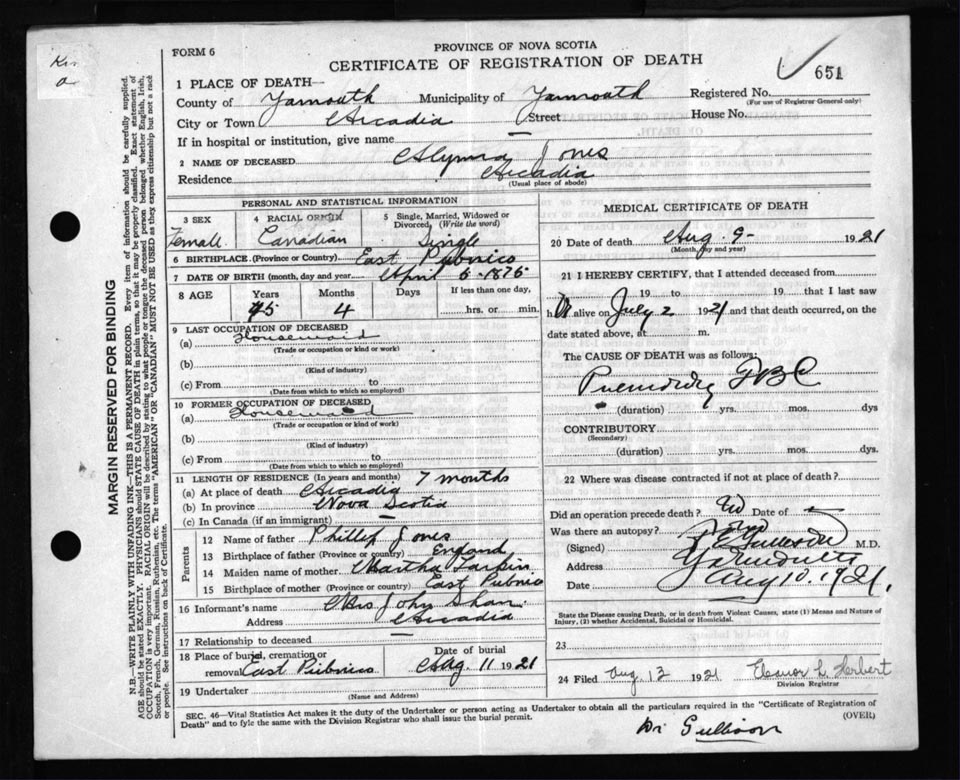 651
FORM 6
PROVINCE OF NOVA SCOTIA
CERTIFICATE OF REGISTRATION OF DEATH
1 PLACE OF DEATH—
County of Yarmouth Municipality of Yarmouth Registered No.
(For use of Registrar General only)
City or Town Arcadia Street — House No.
If in hospital or institution, give name
2 NAME OF DECEASED Jones
Residence Arcadia
(Usual place of abode)
PERSONAL AND STATISTICAL INFORMATION
3 SEX Female
4 RACIAL ORIGIN Canadian
5 Single, Married, Widowed or Divorced, (Write the word) Single
6 BIRTHPLACE (Province or Country) East Pubnico
7 DATE OF BIRTH (month, day and year) April 6-1876
8 AGE Years 45 Months 4 Days If less than one day, hrs. or min.
9 LAST OCCUPATION OF DECEASED
(a) Housemaid
(Trade or occupation or kind or work)
(b)
(Kind of industry)
(c) From to
(Date from which to which so employed)
10 FORMER OCCUPATION OF DECEASED
(a) Housemaid
(Trade or occupation or kind of work)
(b)
(Kind of industry)
(c) From to
(Date from which to which so employed)
11 LENGTH OF RESIDENCE (In years and months) 7 months
(a) At place of death Arcadia
(b) In province Nova Scotia
(c) In Canada (if an immigrant) —
Parents
12 Name of father Phillip Jones
13 Birthplace of father (Province or country) England
14 Maiden name of mother Martha Larkin
15 Birthplace of mother (Province or country) East Pubnico
16 Informant's name Mrs John
Address Arcadia
17 Relationship to deceased —
18 Place of burial, cremation or removal East Pubnico
Date of burial Aug. 11 1921
19 Undertaker
(Name and Address)
MEDICAL CERTIFICATE OF DEATH
20 Date of death Aug. 9- 1921
(Month, day and year)
21 I HEREBY CERTIFY, that I attended deceased from
19 to 19 that I last saw
h alive on July 2 1921 and that death occurred, on
date stated above, at m.
The CAUSE OF DEATH was as follows:
(duration) yrs. mos. dys
CONTRIBUTORY
(Secondary)
(duration) yrs. mos. dys.
22 Where was disease contracted if not at place of death?
Did an operation precede death? No Date of
Was there an autopsy?
(Signed) M.D.
Address Yarmouth
Date Aug 10. 1921.
State the Disease causing Death, or in death from Violent Causes, state (1) Means and Nature of
Injury, (2) whether Accidental, Suicidal or Homicidal.
23
24 Filed Aug. 12 1921 Eleanor L. Herbert
Division Registrar
SEC. 46—Vital Statistics Act makes it the duty of the Undertaker or person acting as Undertaker to obtain all the particulars required in the "Certificate of Registration of
Death" and to fyle the same with the Division Registrar who shall issue the burial permit. (OVER)
MARGIN RESERVED FOR BINDING
N.B.—WRITE PLAINLY WITH UNFADING INK—THIS IS A PERMANENT RECORD. Every item of information should be carefully supplied.
AGE should be stated EXACTLY. PHYSICIANS should STATE CAUSE OF DEATH in plain terms, so that it may be properly classified. Exact statement of
OCCUPATION is very important. RACIAL ORIGIN will be described by stating to what people or tongue the deceased person belonged whether English, Irish,
Scotch, French, German, Russian, Ruthenian, etc. The terms "AMERICAN" or "CANADIAN" MUST NOT BE USED as they express citizenship but not a race
or people. See instructions on back of Certificate.